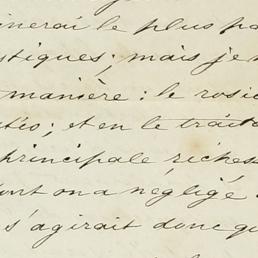 inerai le plus pa
stiques; mais je n
manière: le rosie
téo; et en le traita
principale richess
ont on a négligé
s'agirait donc qu